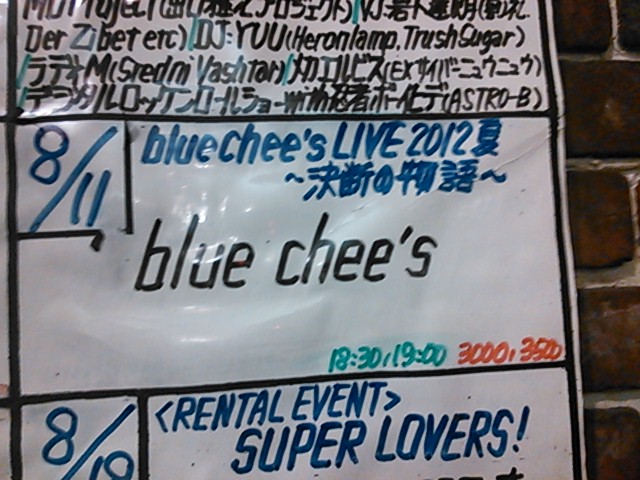 Der Zibet etc)/DJ:YUU(Heronlamp,TrushSugar)
/ラデオM(Sredni Vashtar)/メカエルビス(EXサイバーニュウニュウ)
/デジタルロッケンロールショーwith忍者ボーイヒデ(ASTRO-B)
8/11
bluechee's LIVE2012夏
～決断の物語～
blue chee's
18:30,19:00 3000,3500
<RENTAL EVENT>
SUPER LOVERS!